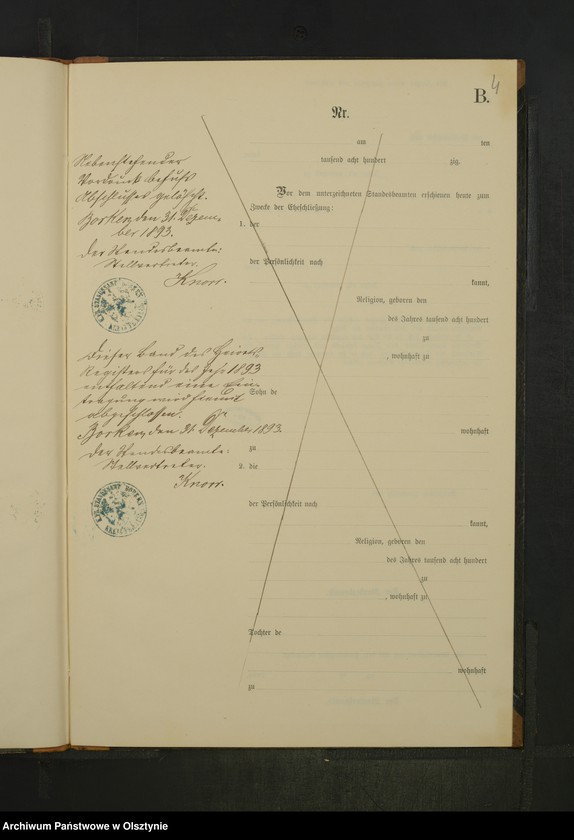 B.
4
Nr.
Nebenstehender
Vordruck behufs
Abschlusses gelöscht.
Borken, den 31. Dezem-
ber 1893.
Der Standesbeamte:
Stellvertreter.
Knorr.
Dieser Band des Heirats-
Registers für das Jahr 1893
enthaltend eine Ein-
tragung wird hiermit
abgeschlossen.
Borken, den 31. Dezember 1893.
Der Standesbeamte:
Stellvertreter.
Knorr.
am ten
tausend acht hundert zig.
Vor dem unterzeichneten Standesbeamten erschienen heute zum
Zwecke der Eheschließung:
1. der
der Persönlichkeit nach
kannt,
Religion, geboren den
des Jahres tausend acht hundert
zu
, wohnhaft zu
Sohn de
wohnhaft
zu
2. die
der Persönlichkeit nach
kannt,
Religion, geboren den
des Jahres tausend acht hundert
zu
, wohnhaft zu
Tochter de
wohnhaft
zu
Archiwum Państwowe w Olsztynie